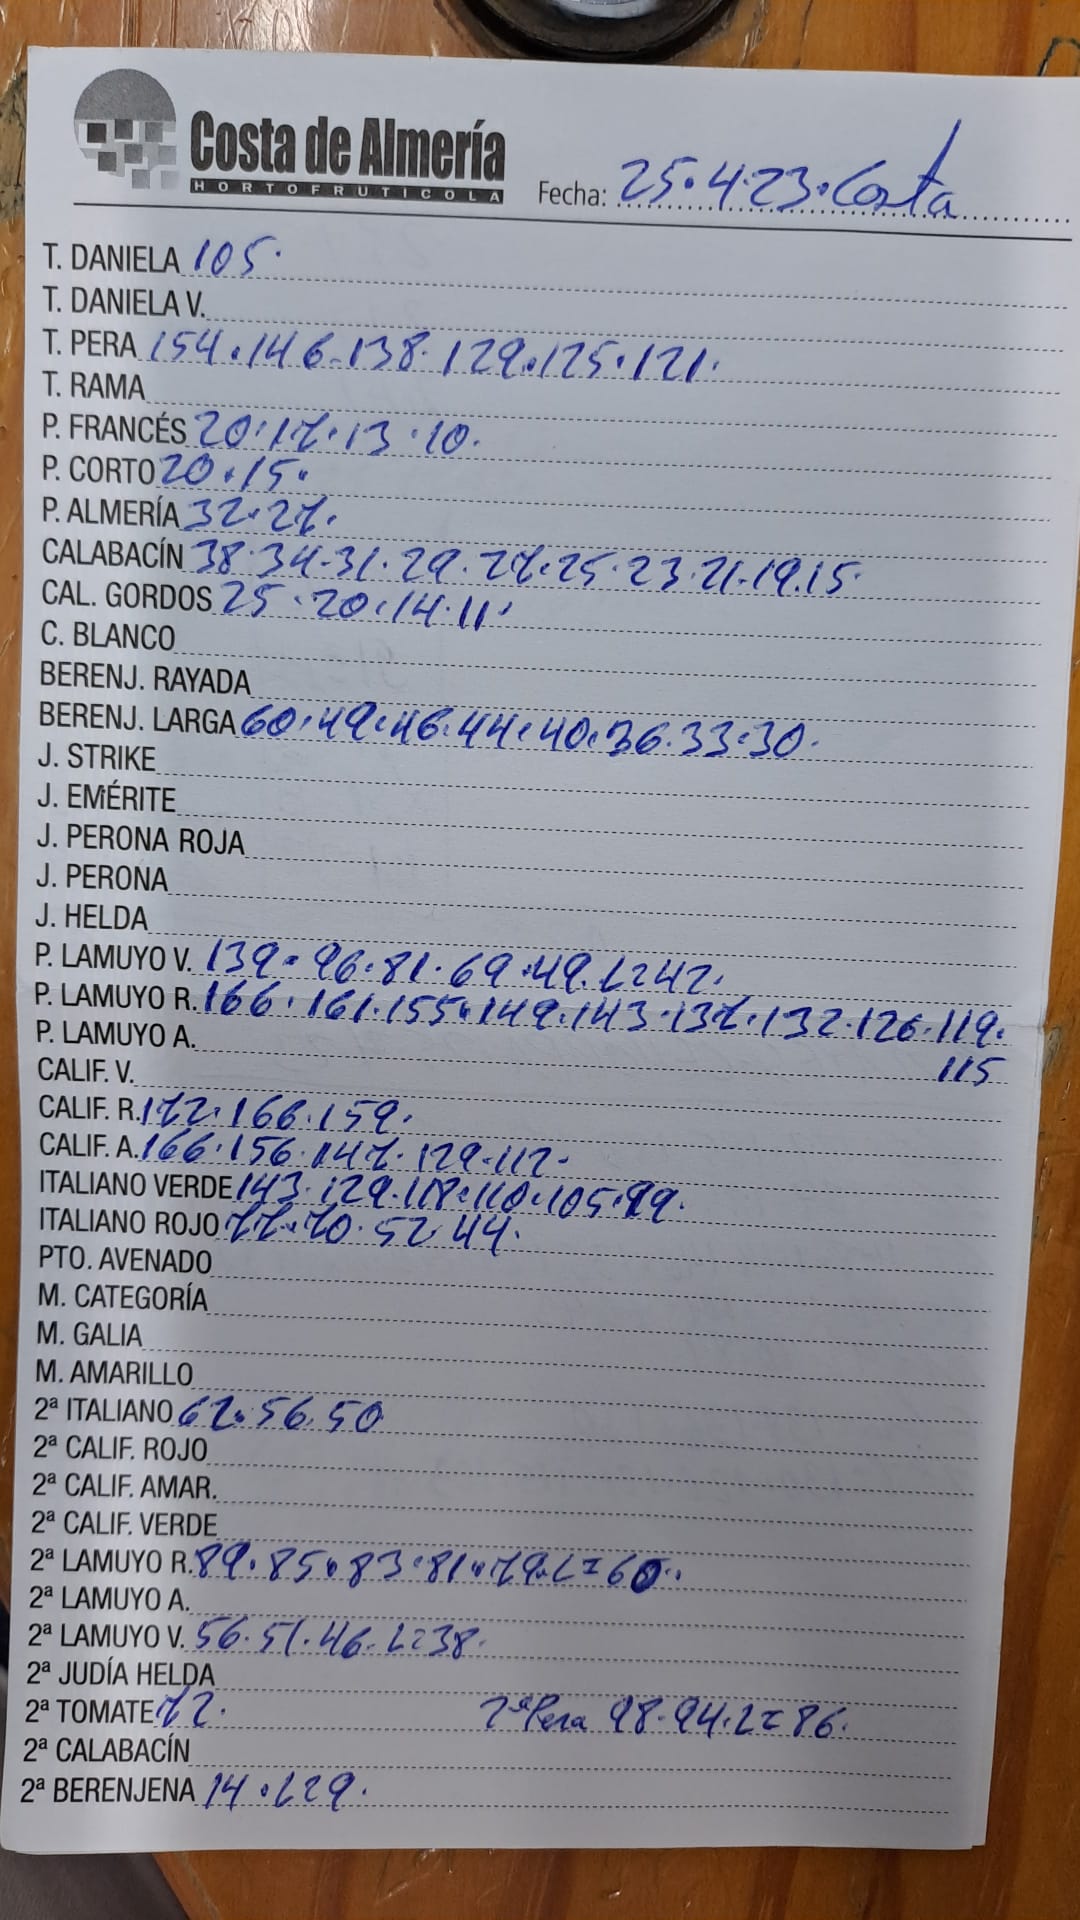 Costa de Almería
HORTOFRUTICOLA
Fecha: 25.4.23. Costa
T. DANIELA 105.
T. DANIELA V.
T. PERA 154.146.138.129.125.121.
T. RAMA
P. FRANCÉS 20.17.13.10.
P. CORTO 20.15.
P. ALMERÍA 32.27.
CALABACÍN 38.34.31.29.27.25.23.21.19.15.
CAL. GORDOS 25.20.14.11.
C. BLANCO
BERENJ. RAYADA
BERENJ. LARGA 60.49.46.44.40.36.33.30.
J. STRIKE
J. EMÉRITE
J. PERONA ROJA
J. PERONA
J. HELDA
P. LAMUYO V. 139.96.81.69.49.L=42.
P. LAMUYO R. 166.161.155.149.143.137.132.126.119.
115
P. LAMUYO A.
CALIF. V.
CALIF. R. 172.166.159.
CALIF. A. 166.156.147.129.117.
ITALIANO VERDE 143.129.118.110.105.99.
ITALIANO ROJO 77.70.52.44.
PTO. AVENADO
M. CATEGORÍA
M. GALIA
M. AMARILLO
2ª ITALIANO 62.56.50
2ª CALIF. ROJO
2ª CALIF. AMAR.
2ª CALIF. VERDE
2ª LAMUYO R. 89.85.83.81.79.L=60.
2ª LAMUYO A.
2ª LAMUYO V. 56.51.46.L=38.
2ª JUDÍA HELDA
2ª TOMATE 72. 2ª Pera 98.94.L=86.
2ª CALABACÍN
2ª BERENJENA 14.L=9.